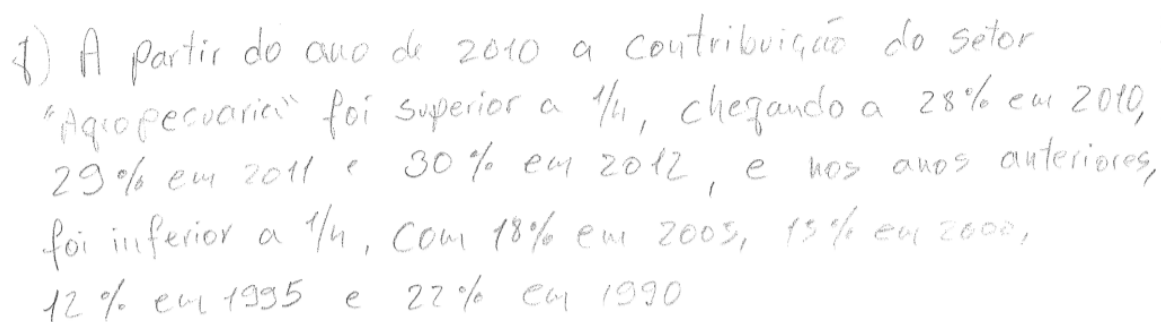 1) A partir do ano de 2010 a contribuição do setor
"Agropecuaria" foi superior a 1/4, chegando a 28% em 2010,
29% em 2011 e 30% em 2012, e nos anos anteriores,
foi inferior a 1/4, com 18% em 2005, 15% em 2000,
12% em 1995 e 22% em 1990